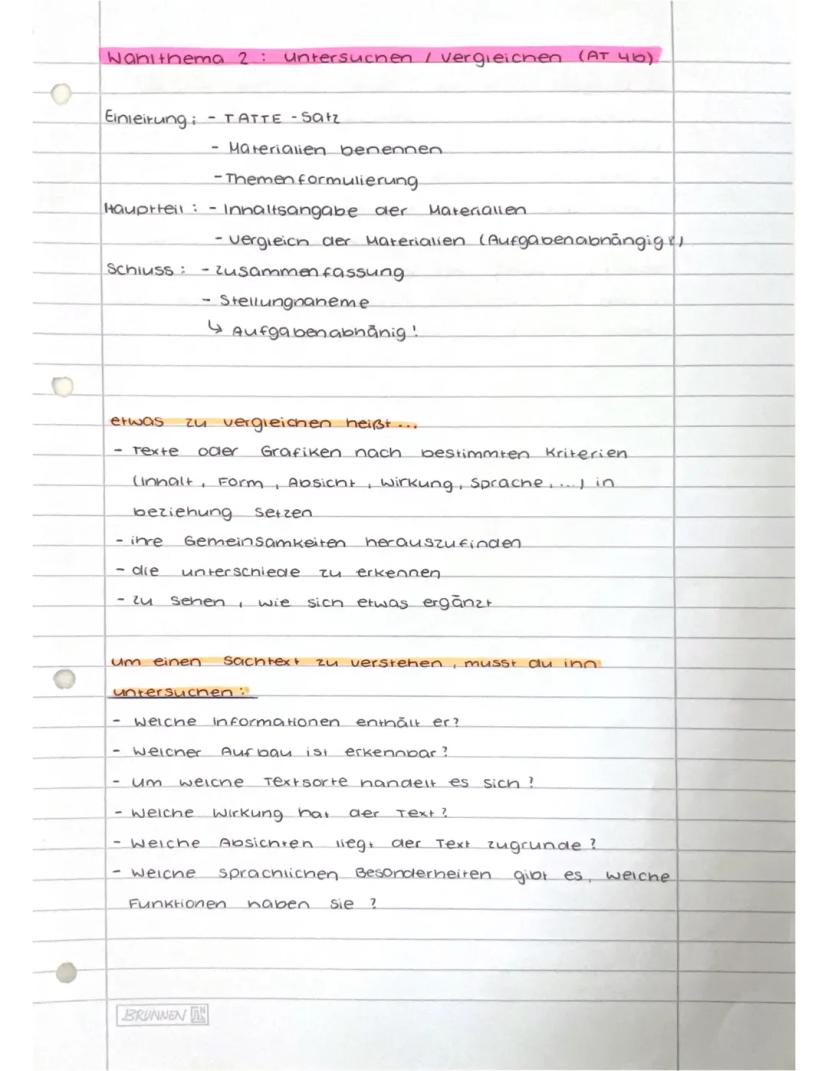 Wahlthema 2 : untersuchen / vergleichen (AT 4b)
Einleitung : - TATTE - Satz
- Materialien benennen
- Themenformulierung
Hauptteil : - Inhaltsangabe der Materialien
- Vergleich der Materialien (Aufgabenabhängig!)
Schluss : - Zusammenfassung
- Stellungnaheme
↳ Aufgabenabhänig!
etwas zu vergleichen heißt ...
- Texte oder Grafiken nach bestimmten Kriterien
(Inhalt, Form, Absicht, Wirkung, Sprache, ...) in
beziehung setzen
- ihre Gemeinsamkeiten herauszufinden
- die unterschiede zu erkennen
- zu sehen, wie sich etwas ergänzt
um einen Sachtext zu verstehen, musst du ihn
untersuchen :
- Welche Informationen enthält er?
- Welcher Aufbau ist erkennbar?
- Um welche Textsorte handelt es sich?
- Welche Wirkung hat der Text?
- Welche Absichten liegt der Text zugrunde?
- Welche sprachlichen Besonderheiten gibt es, welche
Funktionen haben sie ?
BRUNNEN